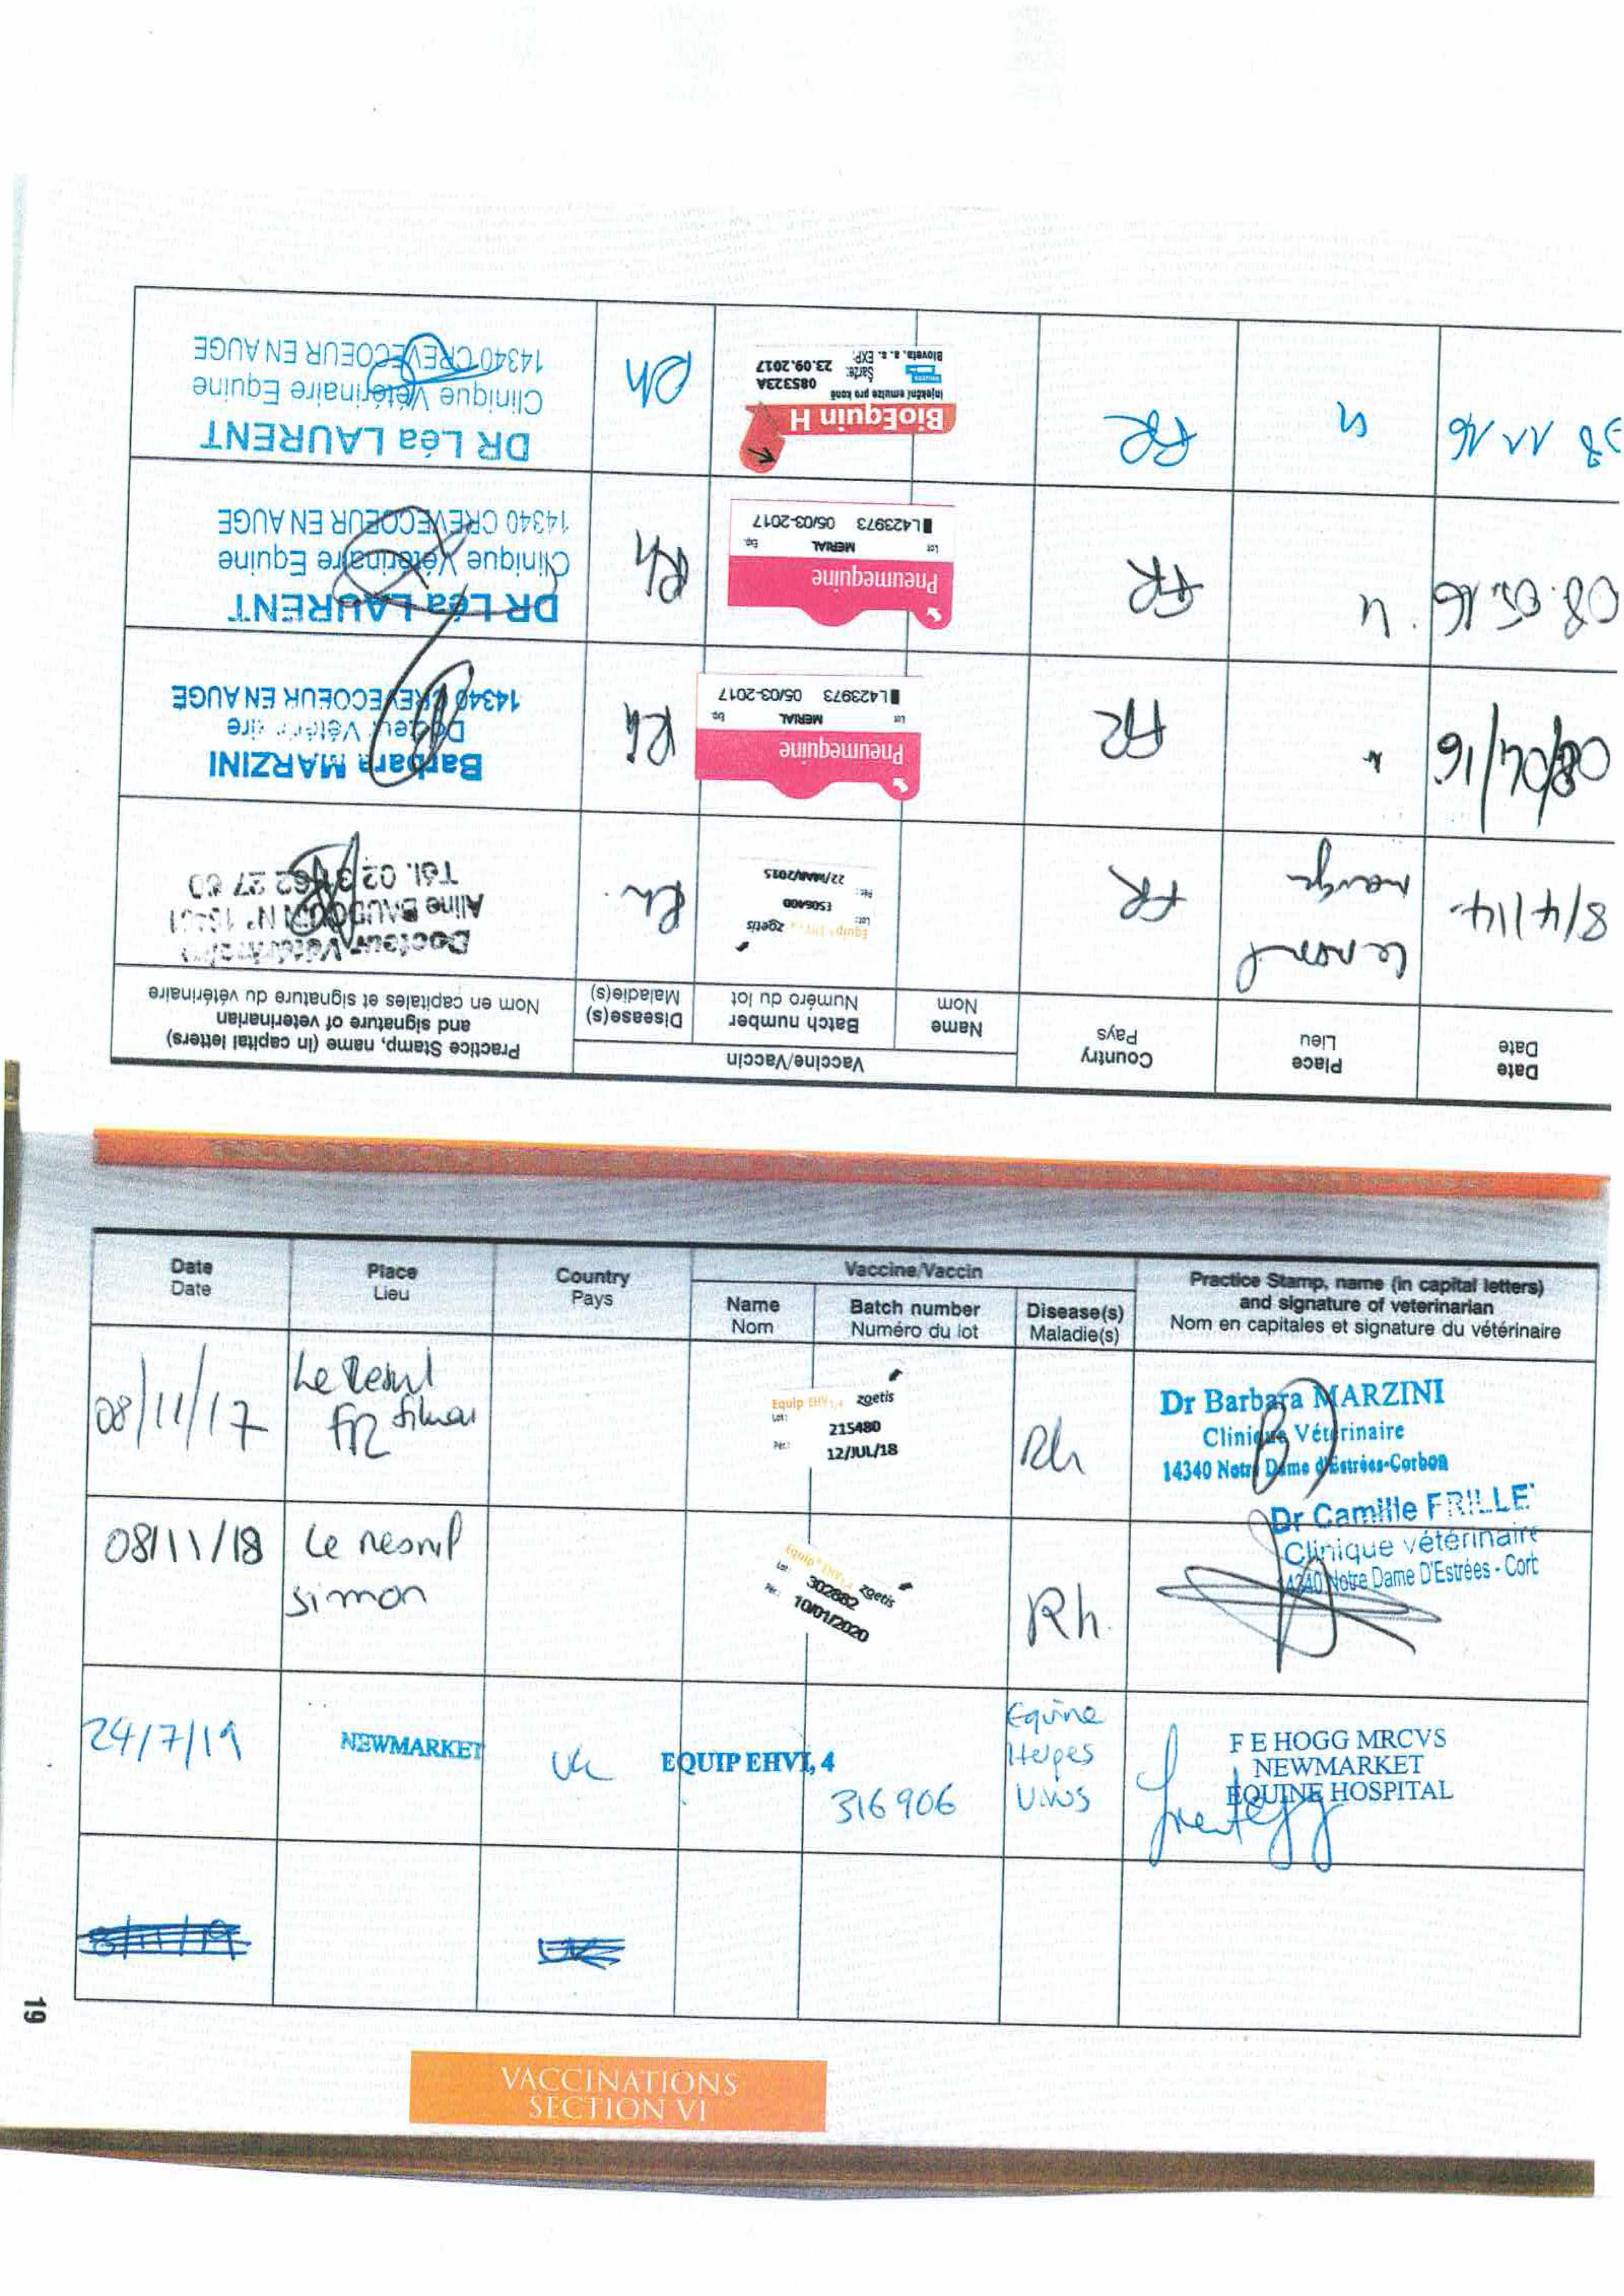 Date
Date
Place
Lieu
Country
Pays
Vaccine/Vaccin
Name
Nom
Batch number
Numéro du lot
Disease(s)
Maladie(s)
Practice Stamp, name (in capital letters)
and signature of veterinarian
Nom en capitales et signature du vétérinaire
8/4/14
FR
Equip EHV1,4 zoetis
Lot: E50540D
Pér.: 22/MAR/2015
Rh
Docteur Vétérinaire
Aline BAUDOUIN
Tél. 02
08/04/16
"
FR
Pneumequine
MERIAL
Lot Exp.
L423973 05/03-2017
Rh
Barbara MARZINI
Docteur Vétérinaire
14340 CREVECOEUR EN AUGE
08.05.16
"
FR
Pneumequine
MERIAL
Lot Exp.
L423973 05/03-2017
Rh
DR Léa LAURENT
Clinique Vétérinaire Equine
14340 CREVECOEUR EN AUGE
11 16
"
FR
BioEquin H
injekční emulze pro koně
Šarže: 085323A
Bioveta, a. s. EXP: 23.09.2017
Rh
DR Léa LAURENT
Clinique Vétérinaire Equine
14340 CREVECOEUR EN AUGE
Date
Date
Place
Lieu
Country
Pays
Vaccine/Vaccin
Name
Nom
Batch number
Numéro du lot
Disease(s)
Maladie(s)
Practice Stamp, name (in capital letters)
and signature of veterinarian
Nom en capitales et signature du vétérinaire
08/11/17
FR
Equip EHV1,4 zoetis
Lot: 215480
Pér.: 12/JUL/18
Rh
Dr Barbara MARZINI
Clinique Vétérinaire
14340 Notre Dame d'Estrées-Corbon
08/11/18
Le mesnil
simon
Equip® EHV1,4 zoetis
Lot: 302882
Pér.: 10/01/2020
Rh.
Dr Camille FRILLE
Clinique vétérinaire
14340 Notre Dame D'Estrées - Corb
24/7/19
NEWMARKET
UK
EQUIP EHV1, 4
316906
Equine
Herpes
Virus
F E HOGG MRCVS
NEWMARKET
EQUINE HOSPITAL
19
VACCINATIONS
SECTION VI